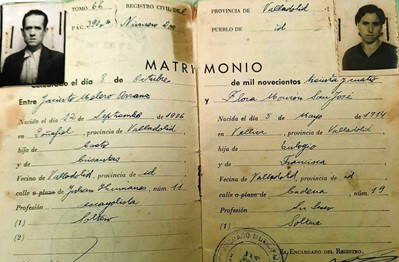 TOMO 66 REGISTRO CIVIL DE
PÁG. Número
MATRI
Celebrado el día 8 de Octubre
Entre Jacinto Molero
Nacido el día 12 de
Septiembre de 1906
en Peñafiel, provincia de Valladolid,
hijo de
y de
Vecino de Valladolid, provincia de id
calle o plaza de núm. 11
Profesión escayolista
(1) Soltero
(2)
PROVINCIA DE Valladolid
PUEBLO DE id
MONIO
de mil novecientos treinta y cuatro
y Flora San José
Nacida el día 5 de
Mayo de 1914
en provincia de Valladolid,
hija de Eutogio
y de Francisca
Vecina de Valladolid, provincia de id
calle o plaza de Cadena núm. 19
Profesión Su sexo
(1) Soltera
(2)
EL ENCARGADO DEL REGISTRO.